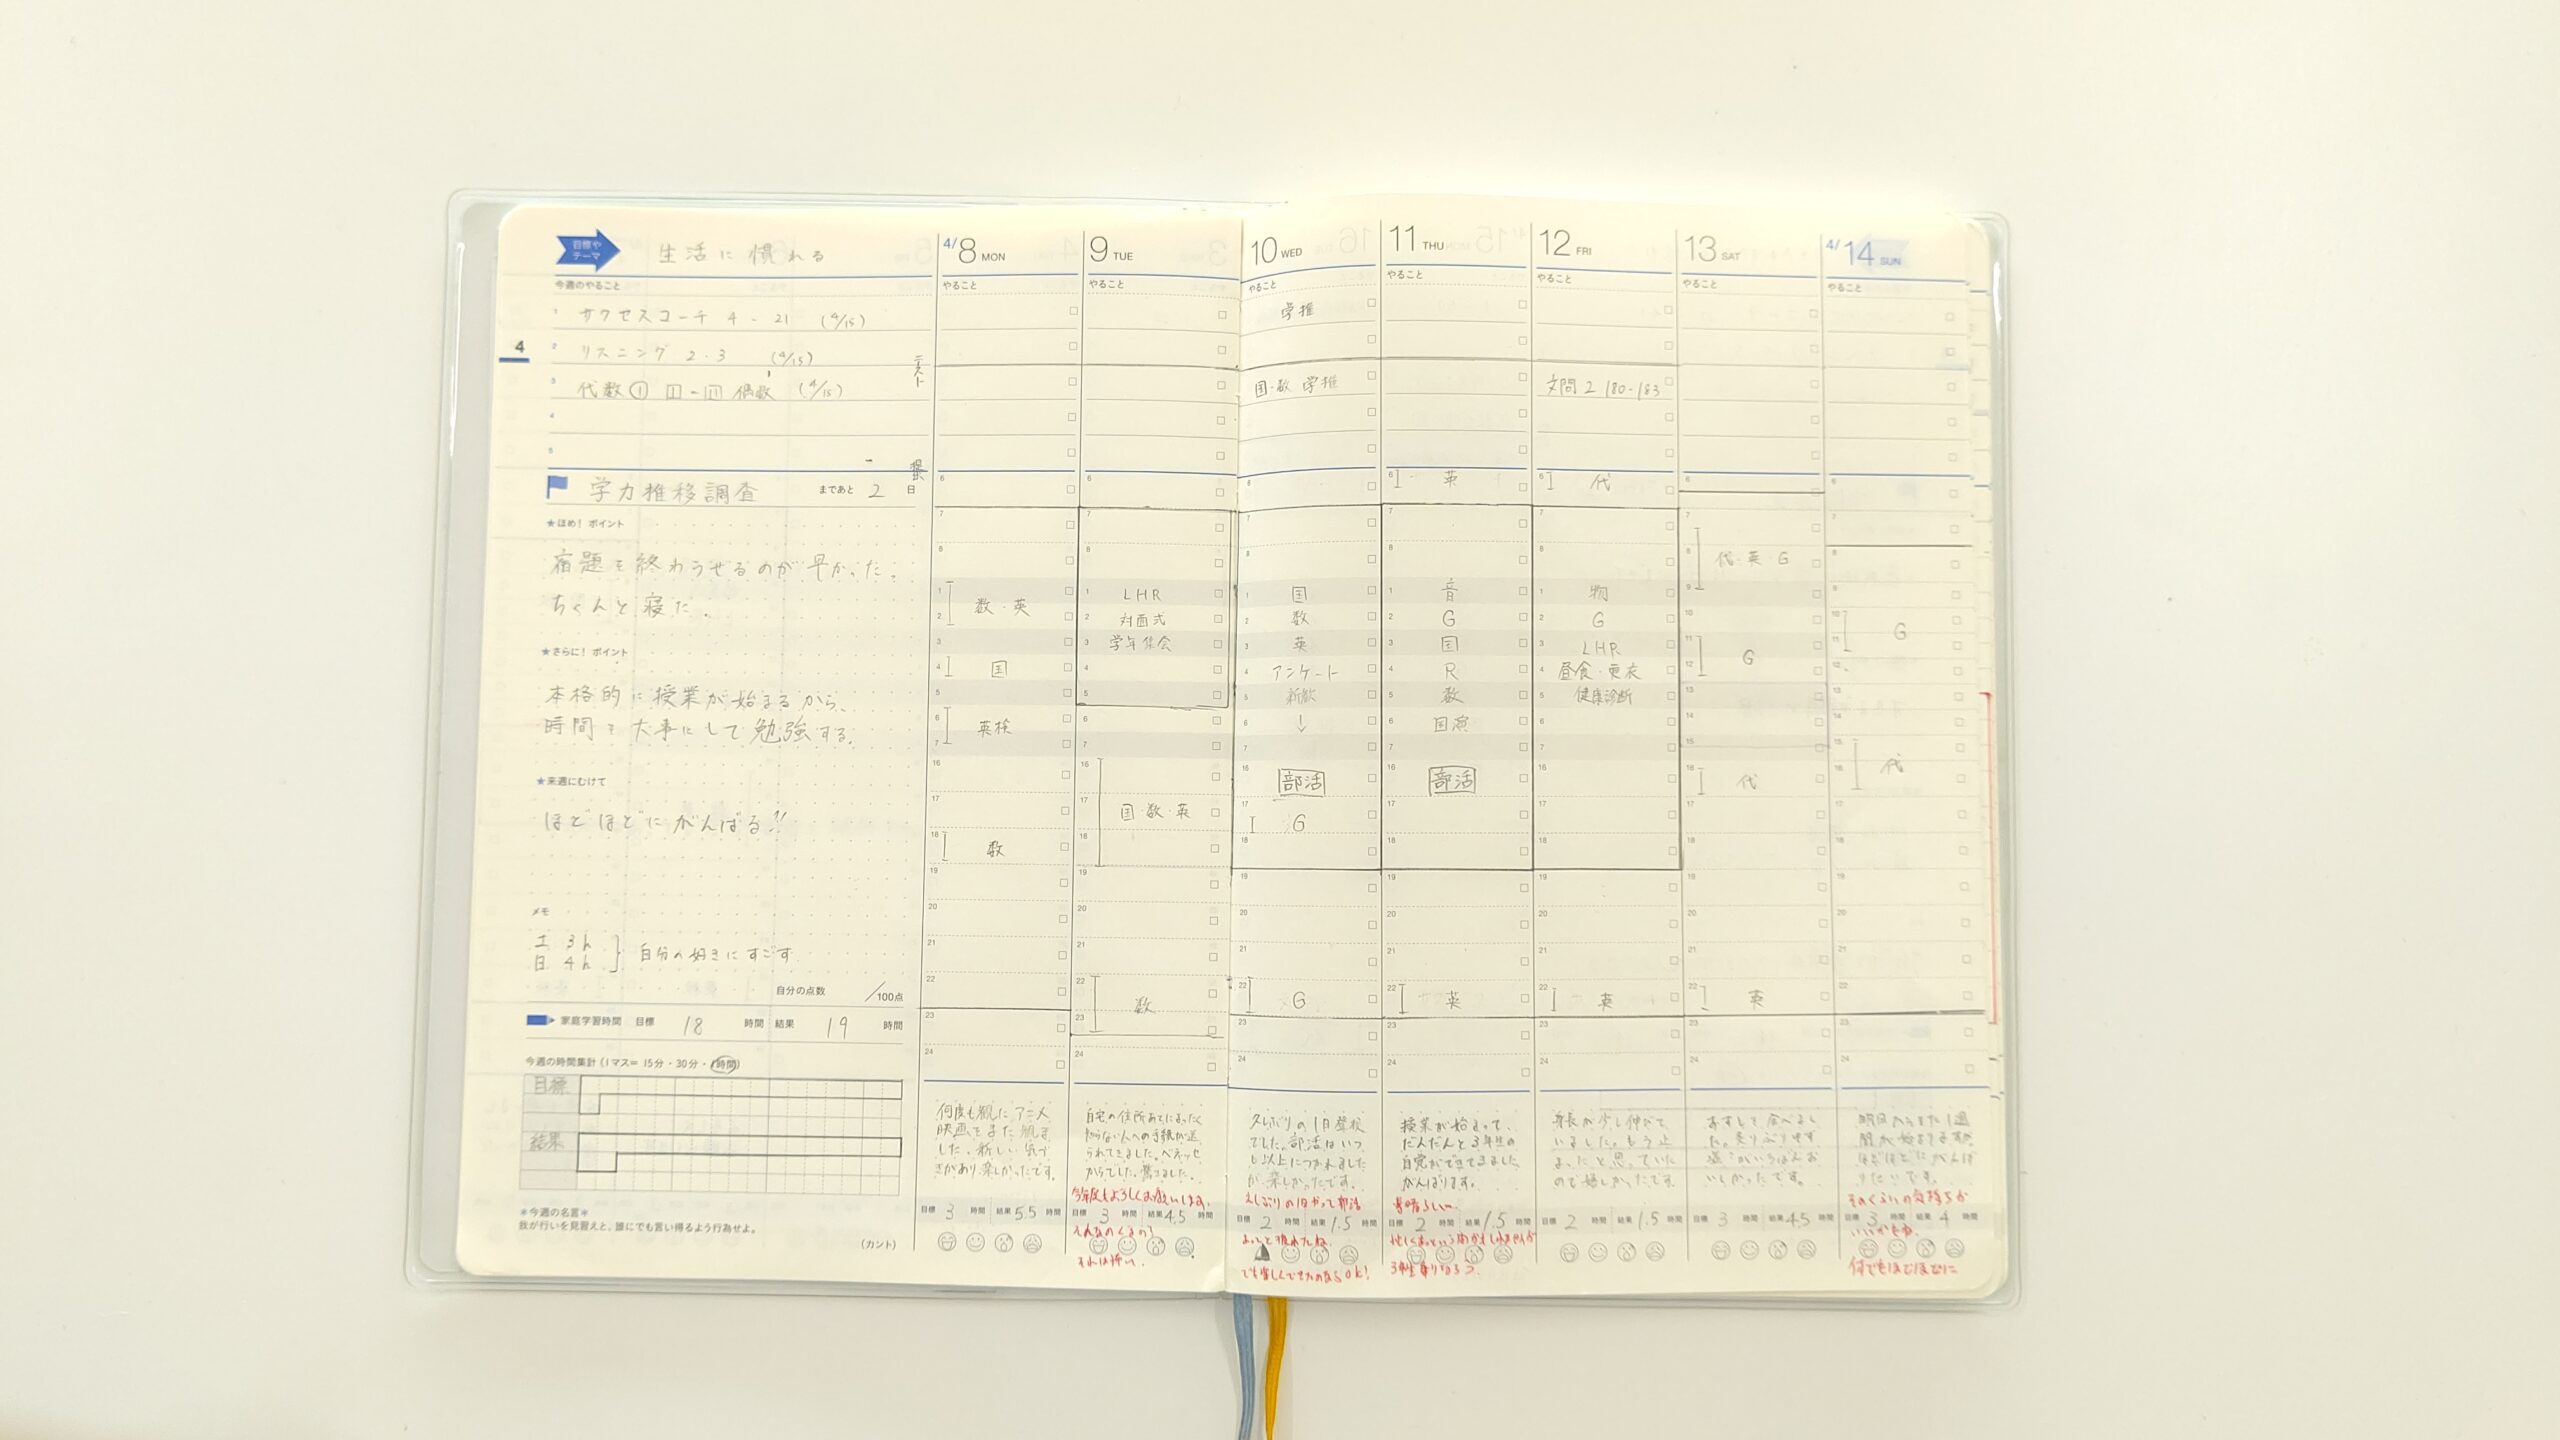 目標や
テーマ
生活に慣れる
今週のやること
1 サクセスコーチ 4 - 21 (4/15)
2 リスニング 2.3 (4/15)
3 代数① 1 - 11 偶数 (4/15)
4
5
4
学力推移調査 まであと 2 日
★ほめ!ポイント
宿題を終わらせるのが早かった。
ちゃんと寝た。
★さらに!ポイント
本格的に授業が始まるから、
時間を大事にして勉強する。
★来週にむけて
ほどほどにがんばる!!
メモ
土 3h
日 4h
自分の好きにすごす
自分の点数 /100点
家庭学習時間 目標 18 時間 結果 19 時間
今週の時間集計(1マス= 15分・30分・1時間)
目標
結果
*今週の名言*
我が行いを見習えと、誰にでも言い得るよう行為せよ。
(カント)
4/8 MON
やること
数・英
国
英検
数
何度も観たアニメ
映画をまた観ま
した。新しい気づ
きがあり楽しかったです。
目標 3 時間 結果 5.5 時間
9 TUE
やること
1 LHR
2 対面式
3 学年集会
国・数・英
数
自宅の住所あてにまったく
知らない人への手紙が送
られてきました。ベネッセ
からでした。驚きました。
今年度もよろしくお願いします。
目標 3 時間 結果 4.5 時間
そんなのくるの?
それは怖い。
10 WED
やること
学推
国・数 学推
1 国
2 数
3 英
4 アンケート
5 新歓
6 ↓
部活
G
G
久しぶりの1日登校
でした。部活はいつ
も以上につかれました
が、楽しかったです。
久しぶりの1日やって部活
目標 2 時間 結果 1.5 時間
でも楽しんできたのならOK!
11 THU
やること
英
1 音
2 G
3 国
4 R
5 数
6 国演
部活
英
授業が始まって、
だんだんと3年生の
自覚ができてきました。
がんばります。
素晴らしい。
目標 2 時間 結果 1.5 時間
12 FRI
やること
文問2 180-183
代
1 物
2 G
3 LHR
4 昼食・更衣
5 健康診断
英
身長が少し伸びて
いました。もう止
まったと思っていた
ので嬉しかったです。
目標 2 時間 結果 1.5 時間
13 SAT
やること
代・英・G
G
代
英
おすしを食べまし
た。
がいちばんお
いしかったです。
目標 3 時間 結果 4.5 時間
4/14 SUN
やること
G
代
明日からまた1週
間が始まりますが、
ほどほどにがんば
りたいです。
そのくらいの気持ちが
目標 3 時間 結果 4 時間
いいかもね。
何でもほどほどに